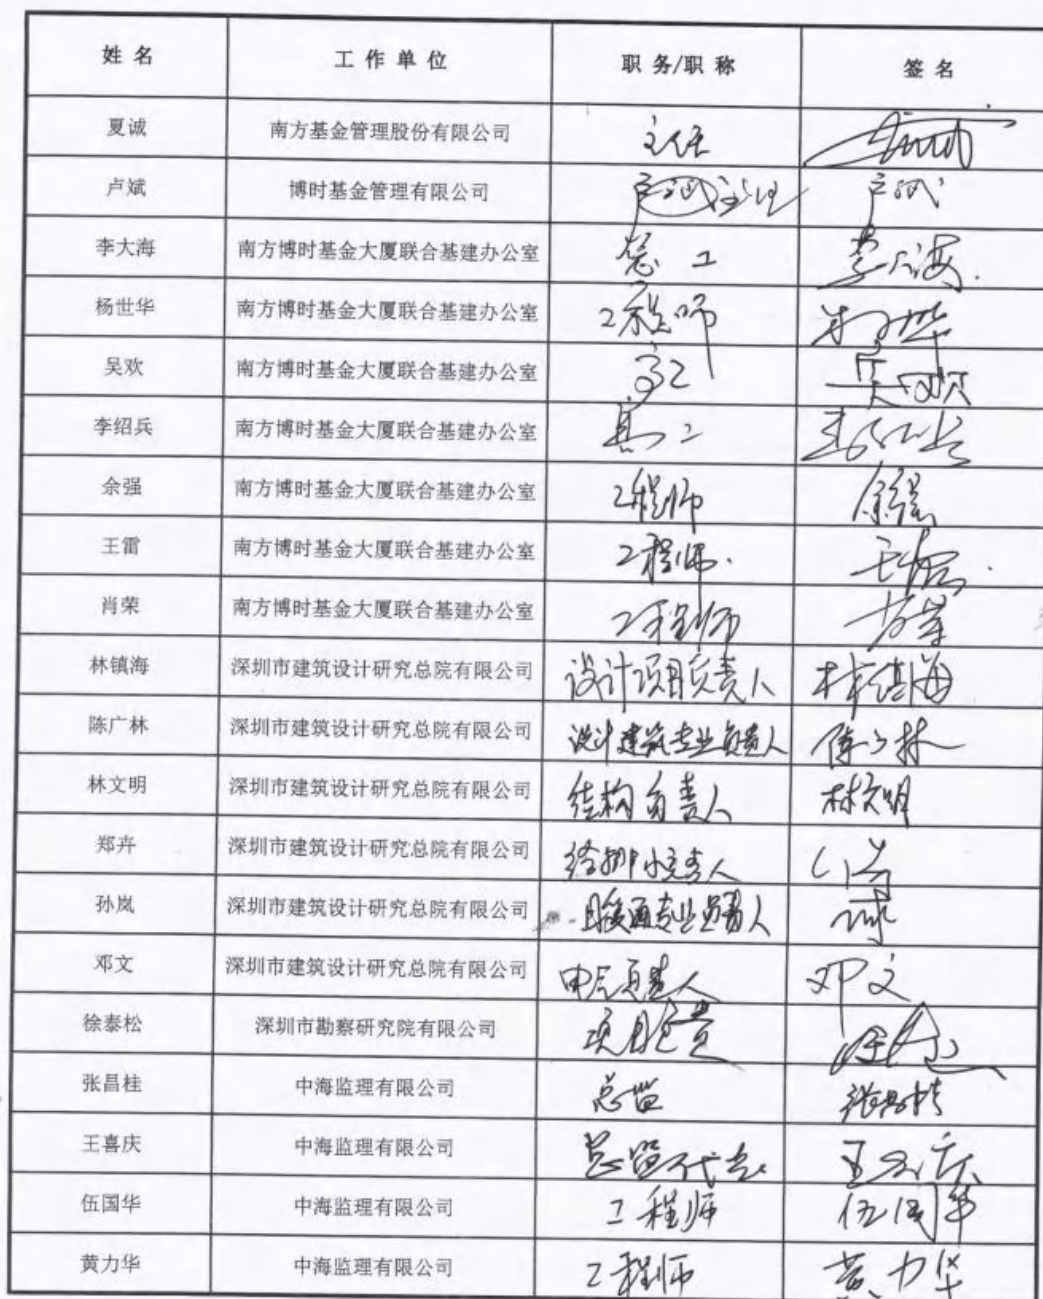 姓 名 工 作 单 位 职 务/职 称 签 名
夏诚 南方基金管理股份有限公司 主任
卢斌 博时基金管理有限公司 卢斌
李大海 南方博时基金大厦联合基建办公室 总工 李大海
杨世华 南方博时基金大厦联合基建办公室 工程师 杨世华
吴欢 南方博时基金大厦联合基建办公室 高工 吴欢
李绍兵 南方博时基金大厦联合基建办公室 高工 李绍兵
余强 南方博时基金大厦联合基建办公室 工程师 余强
王雷 南方博时基金大厦联合基建办公室 工程师
肖荣 南方博时基金大厦联合基建办公室 工程师 肖荣
林镇海 深圳市建筑设计研究总院有限公司 设计项目负责人 林镇海
陈广林 深圳市建筑设计研究总院有限公司 设计建筑专业负责人 陈广林
林文明 深圳市建筑设计研究总院有限公司 结构负责人 林文明
郑卉 深圳市建筑设计研究总院有限公司 给排水负责人
孙岚 深圳市建筑设计研究总院有限公司 暖通专业负责人
邓文 深圳市建筑设计研究总院有限公司 电气负责人 邓文
徐泰松 深圳市勘察研究院有限公司 项目负责
张昌桂 中海监理有限公司 总监 张昌桂
王喜庆 中海监理有限公司 总监代表 王喜庆
伍国华 中海监理有限公司 工程师 伍国华
黄力华 中海监理有限公司 工程师 黄力华